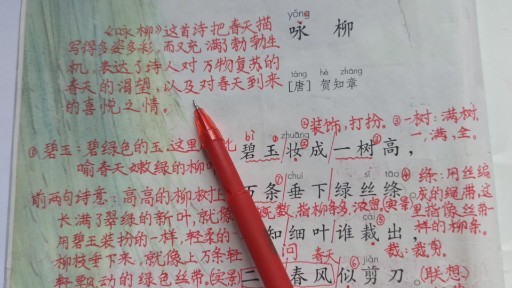 yǒng
《咏柳》这首诗把春天描
写得多姿多彩,而又充满了勃勃生
机,表达了诗人对万物复苏的
春天的渴望,以及对春天到来
的喜悦之情。
咏 柳
táng hè zhāng
[唐] 贺知章
②装饰,打扮。③一树:满树,
一,满,全。
①碧玉:碧绿色的玉,这里
喻春天嫩绿的柳
bì zhuāng
碧玉妆成一树高,
④绦:用丝编
成的绳带,这
里指像丝带一
样的柳条。
前两句诗意:高高的柳树
长满了翠绿的新叶,就像
用碧玉装扮的一样,轻柔的
柳枝垂下来,就像上万条轻
轻飘动的绿色丝带。(实景)
chuí sī
条垂下绿丝绦。
数,指柳条多,浓密
cái
知细叶谁裁出,
问 春天 裁:裁剪。
jiǎn
二 春风似剪刀。
(联想)